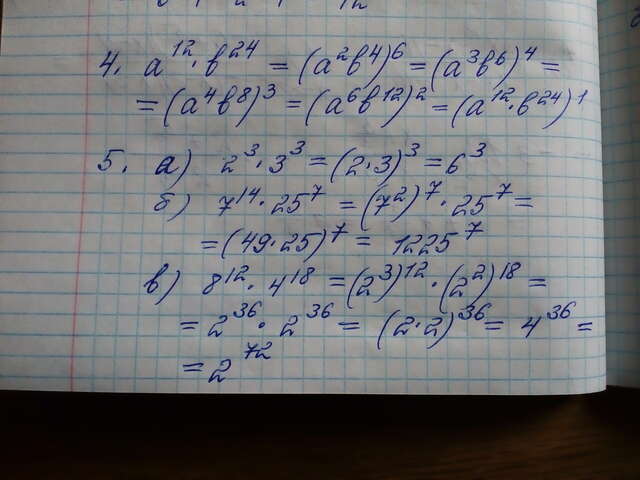 12
4. a¹² · b²⁴ = (a²b⁴)⁶ = (a³b⁶)⁴ =
= (a⁴b⁸)³ = (a⁶b¹²)² = (a¹² · b²⁴)¹
5. а) 2³ · 3³ = (2 · 3)³ = 6³
б) 7¹⁴ · 25⁷ = (7²)⁷ · 25⁷ =
= (49 · 25)⁷ = 1225⁷
в) 8¹² · 4¹⁸ = (2³)¹² · (2²)¹⁸ =
= 2³⁶ · 2³⁶ = (2 · 2)³⁶ = 4³⁶ =
= 2⁷²